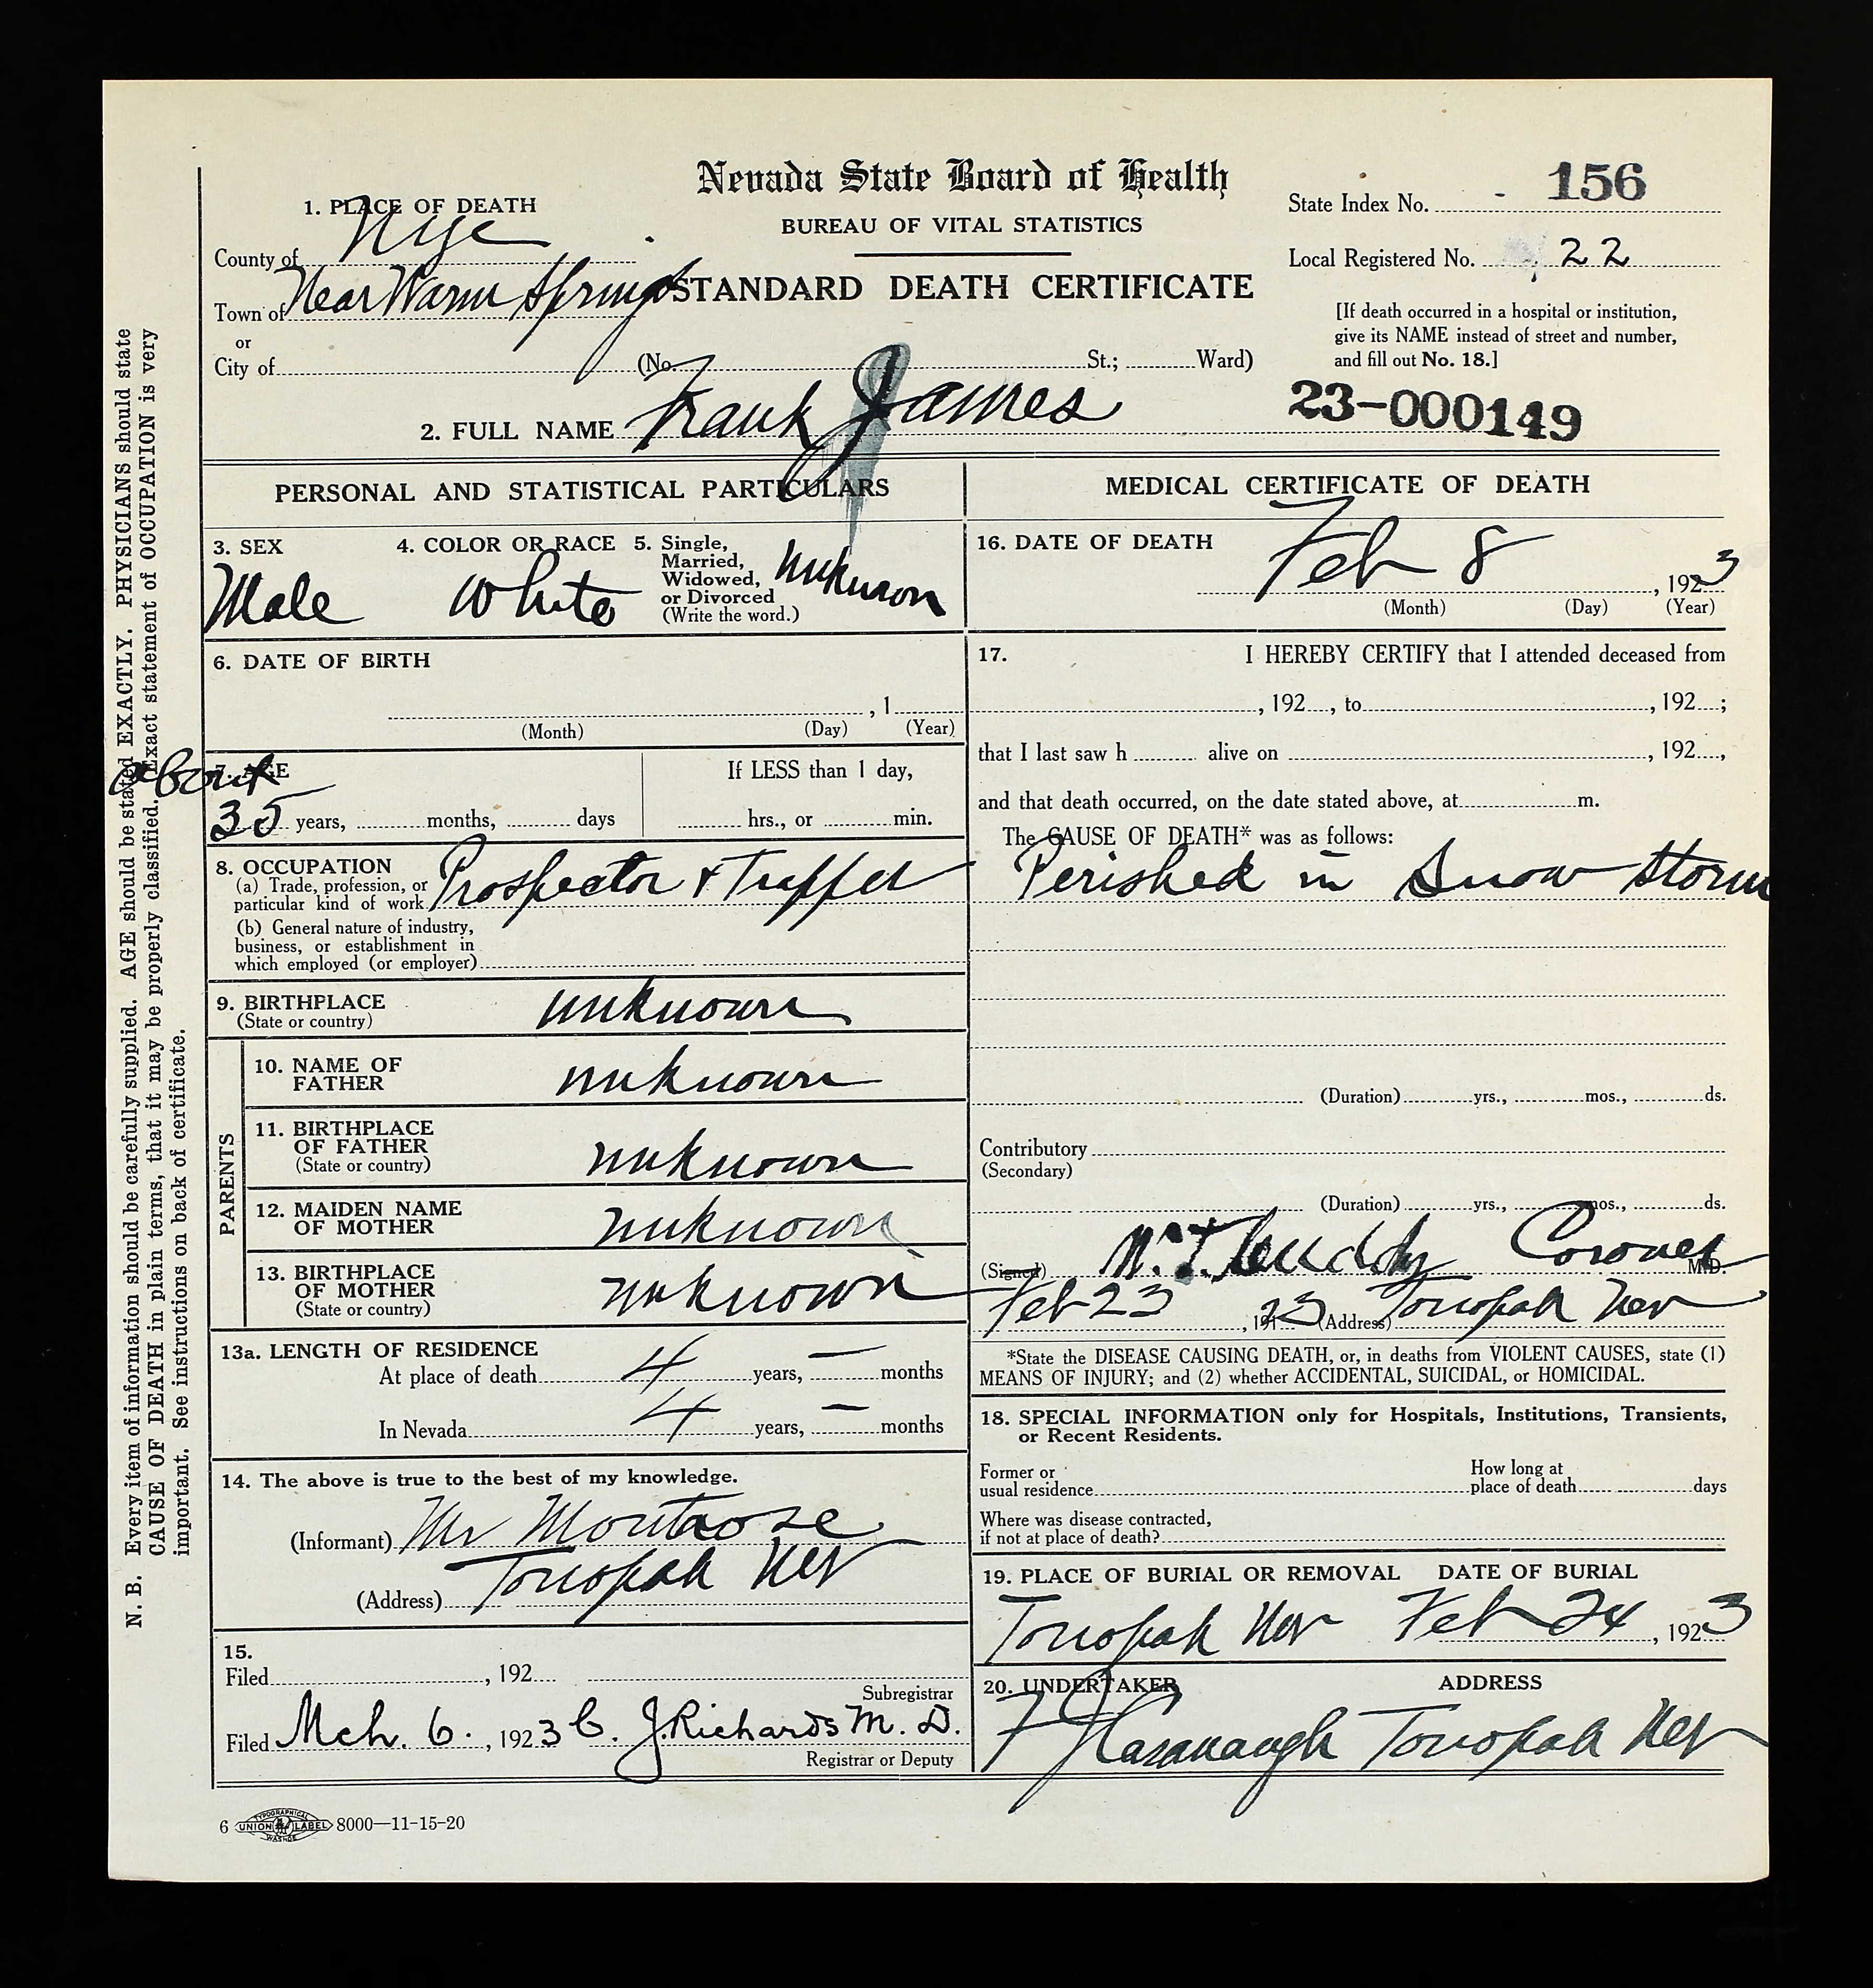 Nevada State Board of Health
BUREAU OF VITAL STATISTICS
STANDARD DEATH CERTIFICATE
State Index No. - 156
Local Registered No. 22
[If death occurred in a hospital or institution,
give its NAME instead of street and number,
and fill out No. 18.]
23-000149
1. PLACE OF DEATH
County of Nye
Town of Near Warm Springs
or
City of (No. St.; Ward)
2. FULL NAME Frank James
PERSONAL AND STATISTICAL PARTICULARS
3. SEX
Male
4. COLOR OR RACE
White
5. Single,
Married,
Widowed,
or Divorced
(Write the word.)
unknown
6. DATE OF BIRTH
, 1
(Month) (Day) (Year)
7. AGE
about
35 years, months, days
If LESS than 1 day,
hrs., or min.
8. OCCUPATION
(a) Trade, profession, or
particular kind of work Prospector & Trapper
(b) General nature of industry,
business, or establishment in
which employed (or employer)
9. BIRTHPLACE
(State or country)
unknown
PARENTS
10. NAME OF
FATHER
unknown
11. BIRTHPLACE
OF FATHER
(State or country)
unknown
12. MAIDEN NAME
OF MOTHER
unknown
13. BIRTHPLACE
OF MOTHER
(State or country)
unknown
13a. LENGTH OF RESIDENCE
At place of death 4 years, — months
In Nevada 4 years, — months
14. The above is true to the best of my knowledge.
(Informant) Mr Montrose
(Address) Tonopah Nev
15.
Filed , 192
Subregistrar
Filed Mch. 6. , 1923 J. Richards M. D.
Registrar or Deputy
MEDICAL CERTIFICATE OF DEATH
16. DATE OF DEATH
Feb 8 , 1923
(Month) (Day) (Year)
17. I HEREBY CERTIFY that I attended deceased from
, 192 , to , 192 ;
that I last saw h alive on , 192 ,
and that death occurred, on the date stated above, at m.
The CAUSE OF DEATH* was as follows:
Perished in Snow Storm
(Duration) yrs., mos., ds.
Contributory
(Secondary)
(Duration) yrs., mos., ds.
(Signed) Coroner M.D.
Feb 23 , 1923 (Address) Tonopah Nev
*State the DISEASE CAUSING DEATH, or, in deaths from VIOLENT CAUSES, state (1)
MEANS OF INJURY; and (2) whether ACCIDENTAL, SUICIDAL, or HOMICIDAL.
18. SPECIAL INFORMATION only for Hospitals, Institutions, Transients,
or Recent Residents.
Former or
usual residence
How long at
place of death days
Where was disease contracted,
if not at place of death?
19. PLACE OF BURIAL OR REMOVAL DATE OF BURIAL
Tonopah Nev Feb 24 , 1923
20. UNDERTAKER ADDRESS
F J Cavanaugh Tonopah Nev
N. B. Every item of information should be carefully supplied. AGE should be stated EXACTLY. PHYSICIANS should state
CAUSE OF DEATH in plain terms, that it may be properly classified. Exact statement of OCCUPATION is very
important. See instructions on back of certificate.
6 TYPOGRAPHICAL UNION LABEL WASHOE 8000—11-15-20